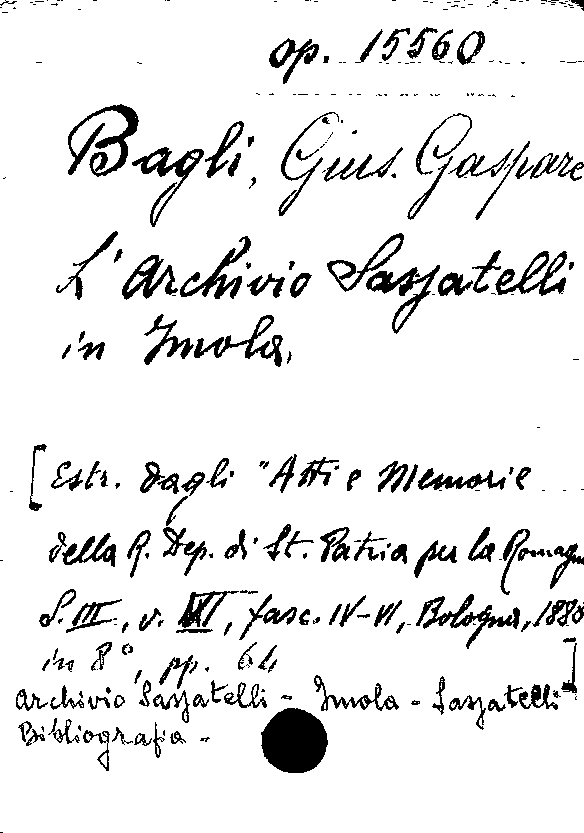 op. 15560
Bagli, Gius. Gaspare
L'Archivio Sassatelli
in Imola.
[Estr. dagli "Atti e Memorie
della R. Dep. di St. Patria per la Romagn
S. III, v. , fasc. IV-VI, Bologna, 188
in 8°, pp. 64 ]
Archivio Sassatelli - Imola - Sassatelli
Bibliografia -